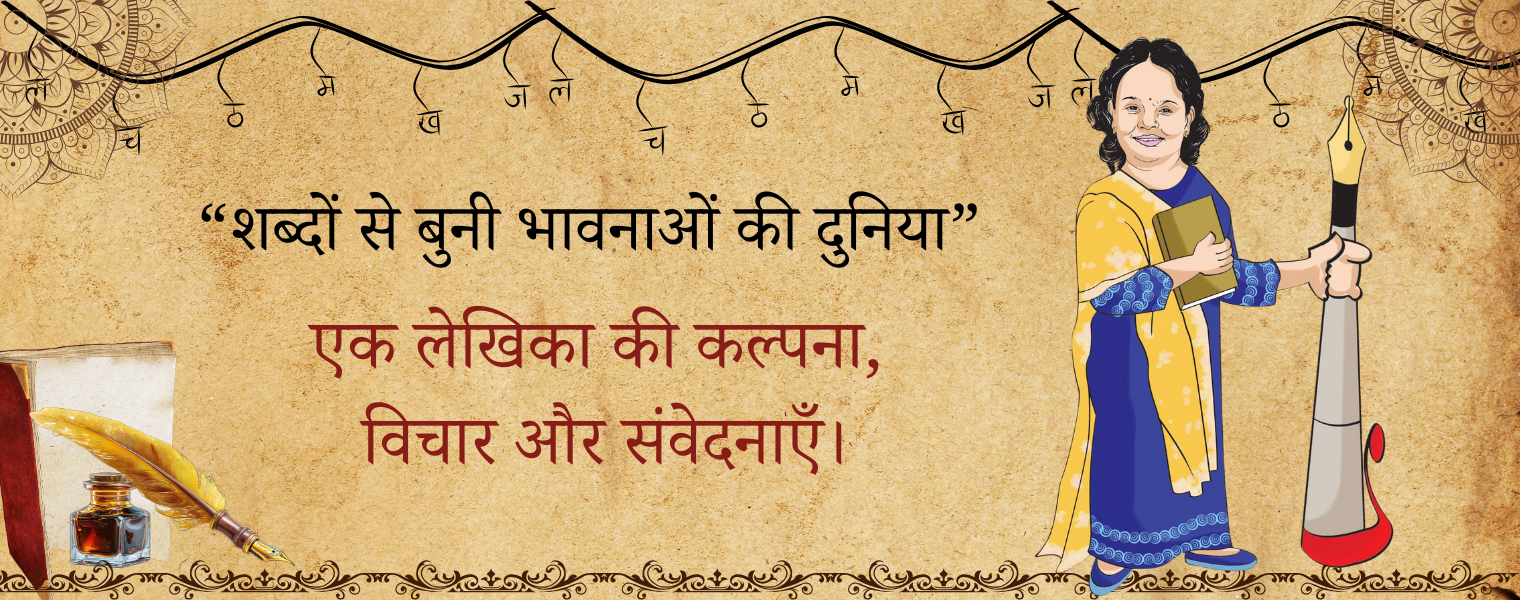 ल च ठ म ख ज ल च ठ म ख ज ल ठ म ख
“शब्दों से बुनी भावनाओं की दुनिया”
एक लेखिका की कल्पना,
विचार और संवेदनाएँ।